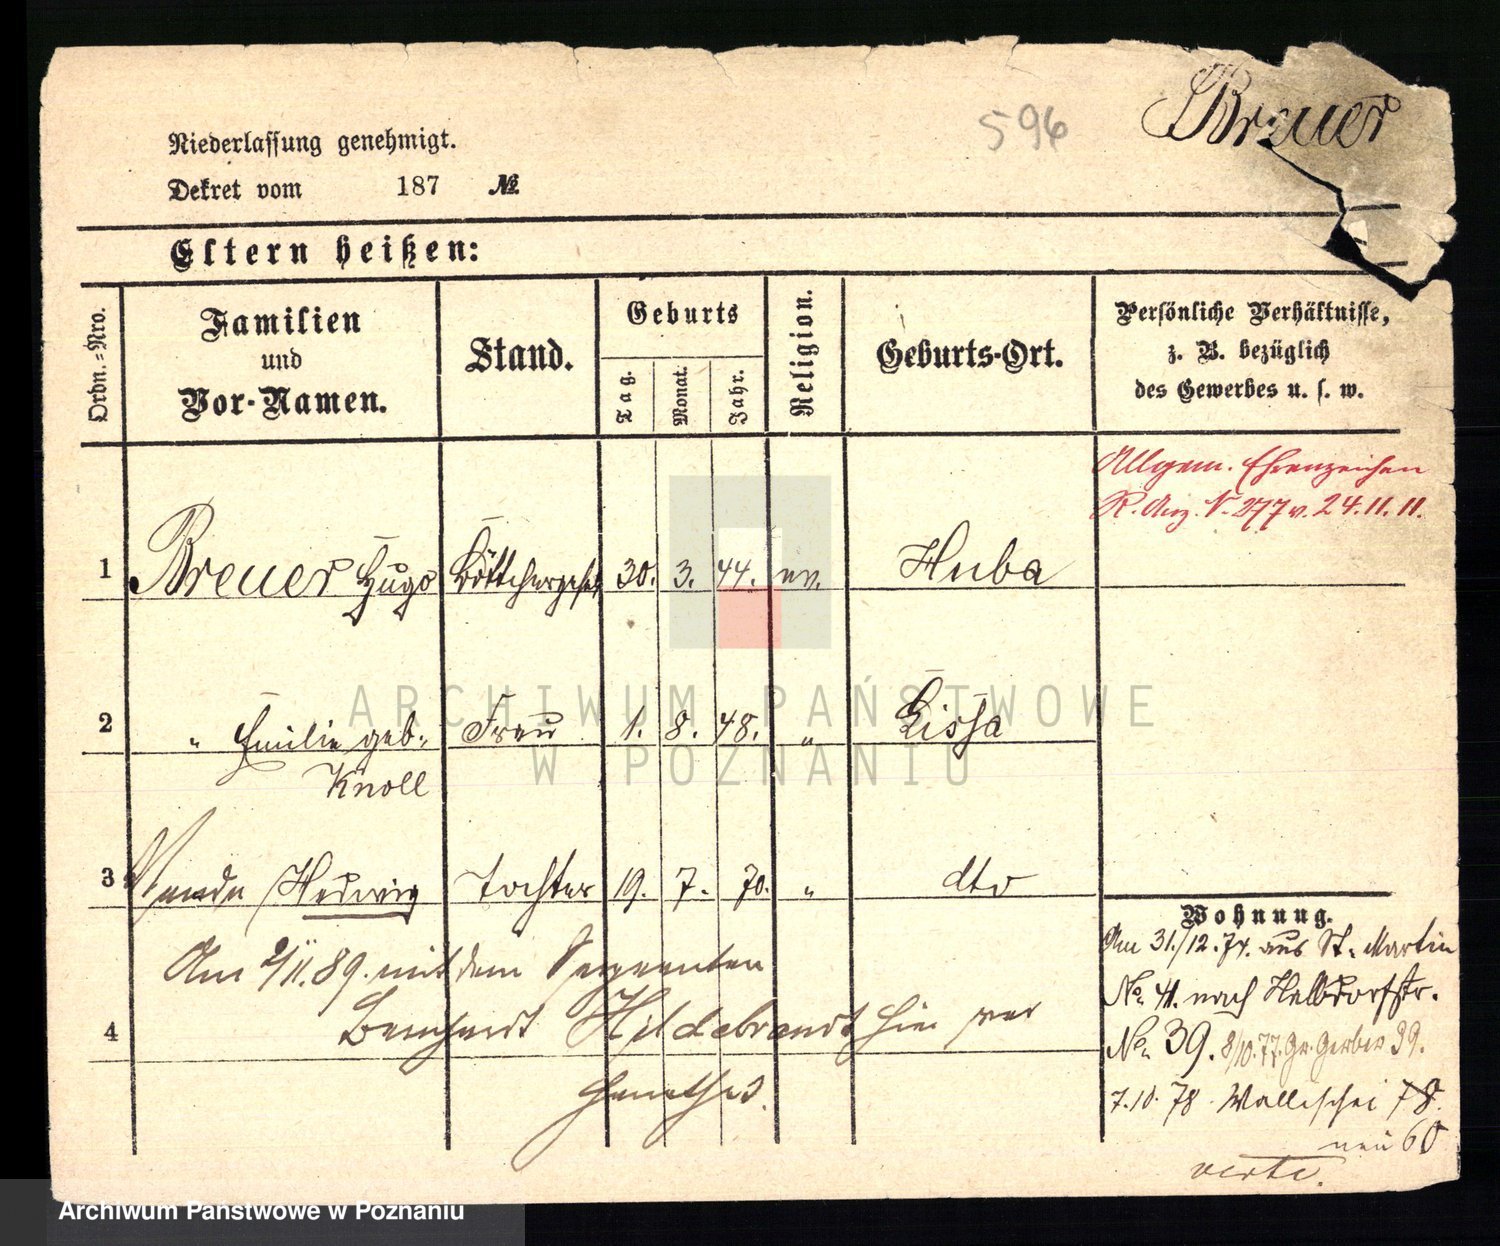 596
Breuer
Niederlassung genehmigt.
Dekret vom 187 №
Eltern heißen:
Ordn.=Nro.
Familien
und
Vor-Namen.
Stand.
Geburts
Tag.
Monat.
Jahr.
Religion.
Geburts-Ort.
Persönliche Verhältnisse,
z. B. bezüglich
des Gewerbes u. s. w.
Allgem. Ehrenzeichen
R. Anz. N. 277 v. 24.11.11.
1 Breuer Hugo Böttchergesel 30. 3. 44. ev. Huba
2 " Emilie geb. Frau 1. 8. 48. " Lissa
Knoll
3 Hedwig Tochter 19. 7. 70. " dto
Am 2/11.89. mit dem Sergeanten
4 Bernhardt Hildebrandt hier ver
heirathet.
Wohnung.
Am 31./12.74. aus St. Martin
No. 41. nach Halbdorfstr.
No. 39. 8/10.77. Gr. Gerber 39.
7.10.78. Wallischei 78.
neu 60
verte.
ARCHIWUM PAŃSTWOWE
W POZNANIU
Archiwum Państwowe w Poznaniu